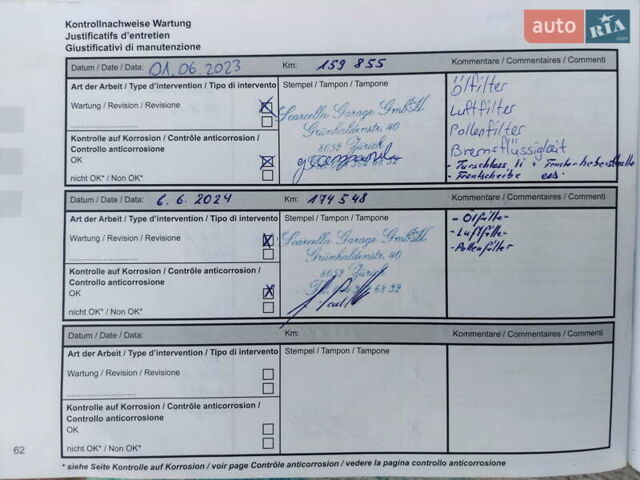 Kontrollnachweise Wartung
Justificatifs d'entretien
Giustificativi di manutenzione
auto RIA .com
Datum / Date / Data: 01.06.2023 Km: 159 855 Kommentare / Commentaires / Commenti
Art der Arbeit / Type d'intervention / Tipo di intervento Stempel / Tampon / Tampone
Wartung / Revision / Revisione
Kontrolle auf Korrosion / Contrôle anticorrosion /
Controllo anticorrosione
OK
nicht OK* / Non OK*
Scarcella Garage GmbH
Grünhaldenstr. 40
8052 Zürich
Ölfilter
Luftfilter
Pollenfilter
Bremsflüssigkeit
- Türschloss li +
- Frontscheibe
Datum / Date / Data: 6.6.2024 Km: 174 548 Kommentare / Commentaires / Commenti
Art der Arbeit / Type d'intervention / Tipo di intervento Stempel / Tampon / Tampone
Wartung / Revision / Revisione
Kontrolle auf Korrosion / Contrôle anticorrosion /
Controllo anticorrosione
OK
nicht OK* / Non OK*
Scarcella Garage GmbH
Grünhaldenstr. 40
8052 Zürich
- Ölfilter
- Luftfilter
- Pollenfilter
Datum / Date / Data: Km: Kommentare / Commentaires / Commenti
Art der Arbeit / Type d'intervention / Tipo di intervento Stempel / Tampon / Tampone
Wartung / Revision / Revisione
Kontrolle auf Korrosion / Contrôle anticorrosion /
Controllo anticorrosione
OK
nicht OK* / Non OK*
62
* siehe Seite Kontrolle auf Korrosion / voir page Contrôle anticorrosion / vedere la pagina controllo anticorrosione